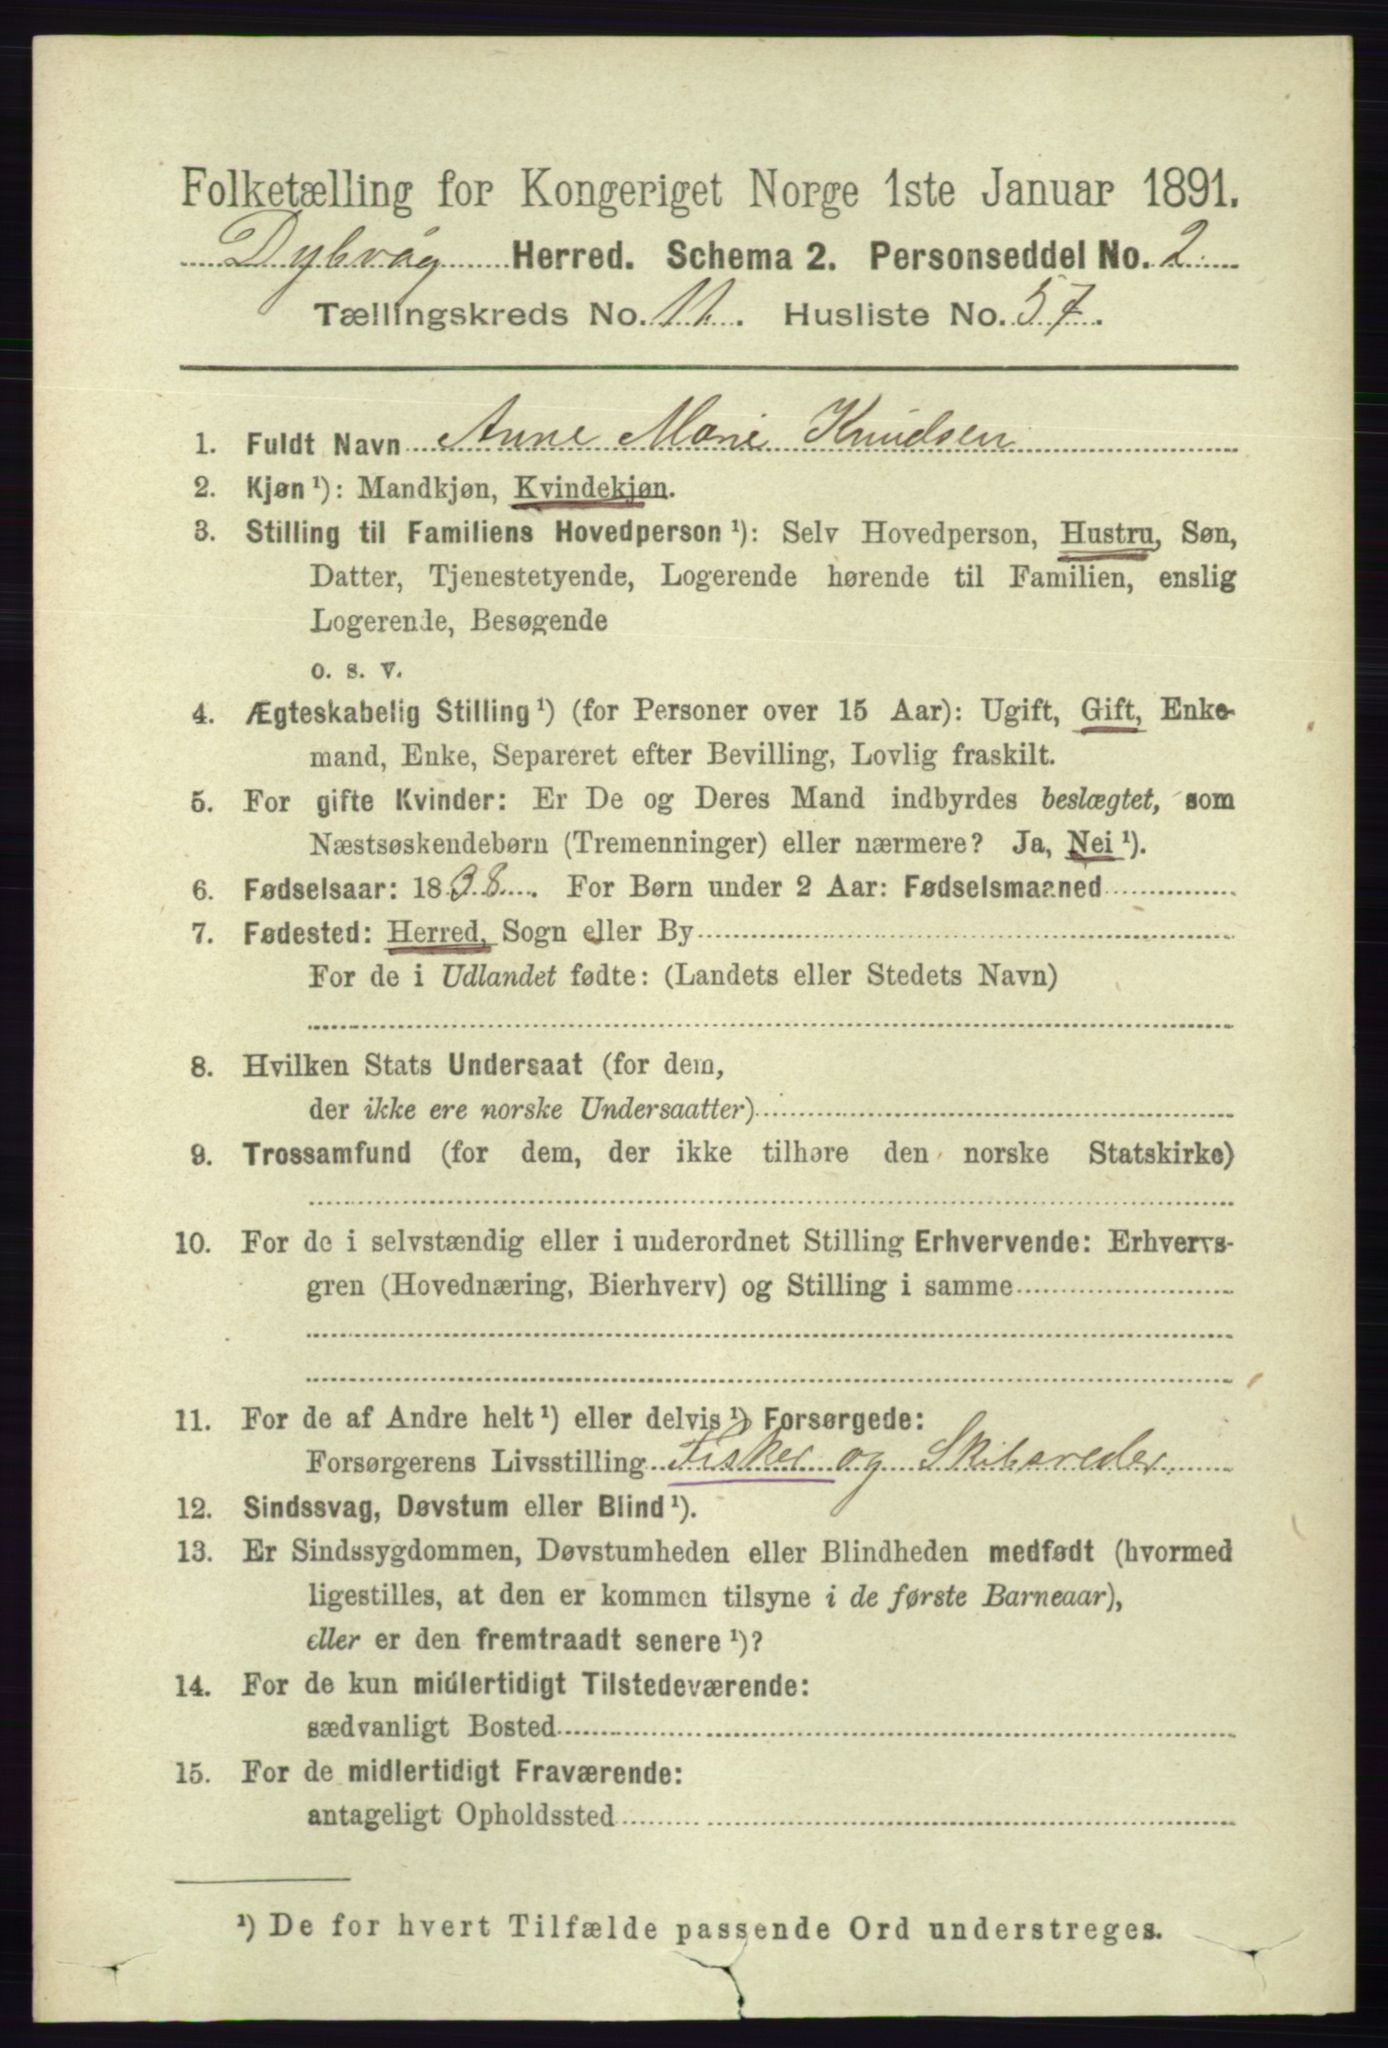 Folketælling for Kongeriget Norge 1ste Januar 1891.
Dybvåg Herred. Schema 2. Personseddel No. 2
Tællingskreds No. 11. Husliste No. 57.
1. Fuldt Navn Anne Marie Knudsen
2. Kjøn ¹): Mandkjøn, Kvindekjøn.
3. Stilling til Familiens Hovedperson ¹): Selv Hovedperson, Hustru, Søn,
Datter, Tjenestetyende, Logerende hørende til Familien, enslig
Logerende, Besøgende
o. s. v.
4. Ægteskabelig Stilling ¹) (for Personer over 15 Aar): Ugift, Gift, Enke-
mand, Enke, Separeret efter Bevilling, Lovlig fraskilt.
5. For gifte Kvinder: Er De og Deres Mand indbyrdes beslægtet, som
Næstsøskendebørn (Tremenninger) eller nærmere? Ja, Nei ¹).
6. Fødselsaar: 1838. For Børn under 2 Aar: Fødselsmaaned
7. Fødested: Herred, Sogn eller By
For de i Udlandet fødte: (Landets eller Stedets Navn)
8. Hvilken Stats Undersaat (for dem,
der ikke ere norske Undersaatter)
9. Trossamfund (for dem, der ikke tilhøre den norske Statskirke)
10. For de i selvstændig eller i underordnet Stilling Erhvervende: Erhvervs-
gren (Hovednæring, Bierhverv) og Stilling i samme
11. For de af Andre helt ¹) eller delvis ¹) Forsørgede:
Forsørgerens Livsstilling Fisker og Skibsreder.
12. Sindssvag, Døvstum eller Blind ¹).
13. Er Sindssygdommen, Døvstumheden eller Blindheden medfødt (hvormed
ligestilles, at den er kommen tilsyne i de første Barneaar),
eller er den fremtraadt senere ¹)?
14. For de kun midlertidigt Tilstedeværende:
sædvanligt Bosted
15. For de midlertidigt Fraværende:
antageligt Opholdssted
¹) De for hvert Tilfælde passende Ord understreges.